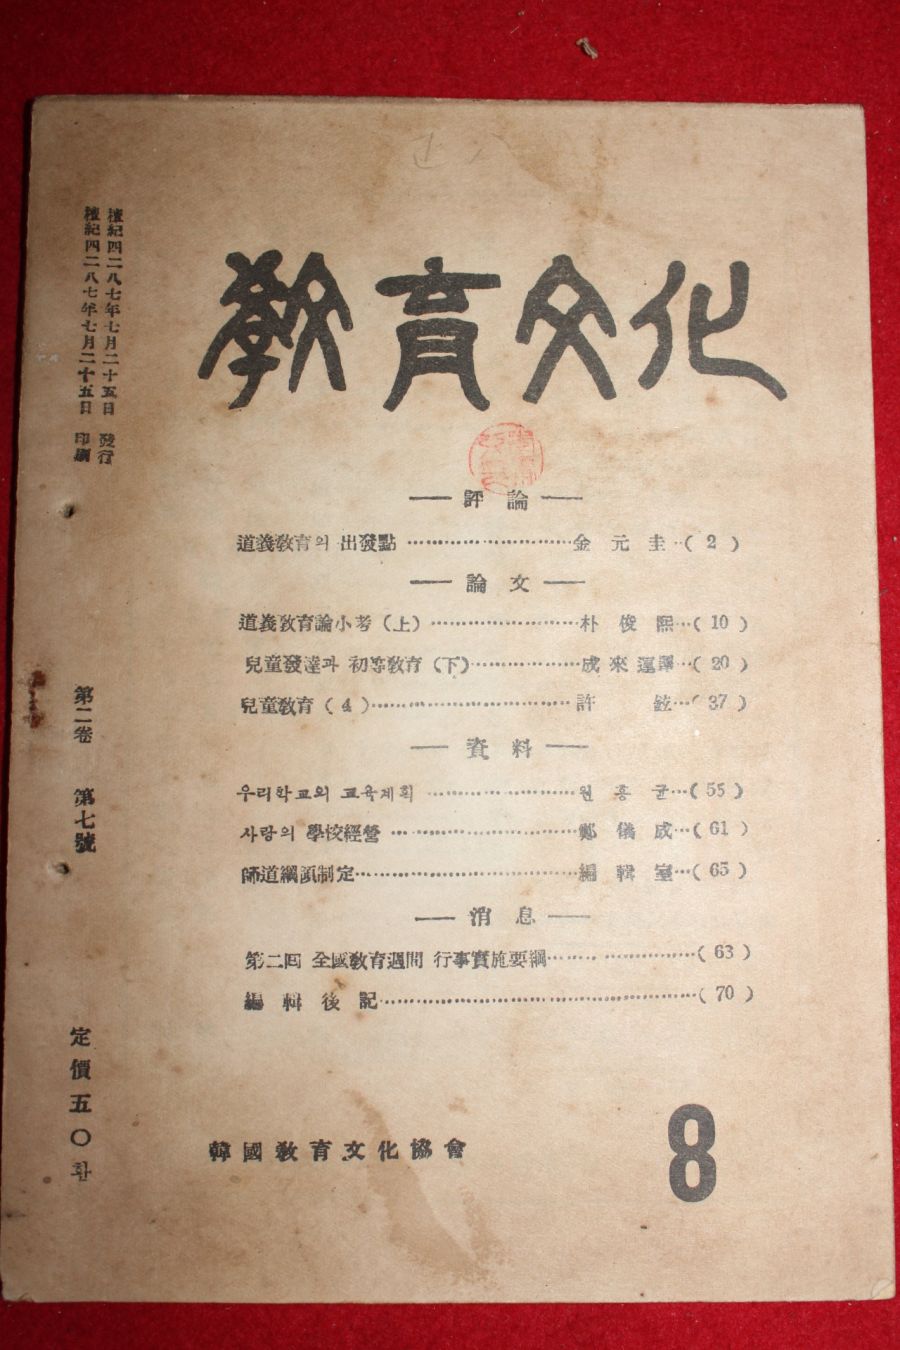 敎育文化
檀紀四二八七年七月二十五日 發行
檀紀四二八七年七月二十五日 印刷
第二卷 第七號
定價五〇환
評論
道義敎育의 出發點 金元圭 (2)
論文
道義敎育論小考(上) 朴俊熙 (10)
兒童發達과 初等敎育(下) 成來運譯 (20)
兒童敎育(4) 許鉉 (37)
資料
우리학교의 교육계획 원흥균 (55)
사랑의 學校經營 鄭儀成 (61)
師道綱領制定 編輯室 (65)
消息
第二回 全國敎育週間 行事實施要綱 (63)
編輯後記 (70)
韓國敎育文化協會
8